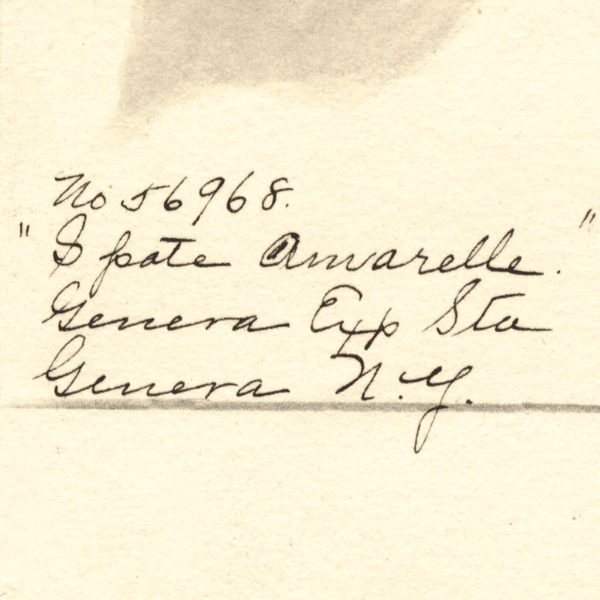 No 56968.
"Spate Amarelle."
Geneva Exp Sta
Geneva N.Y.